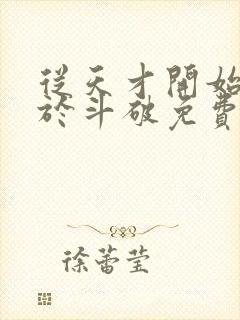 從天才開始
於斗破免費
徐蕾莹